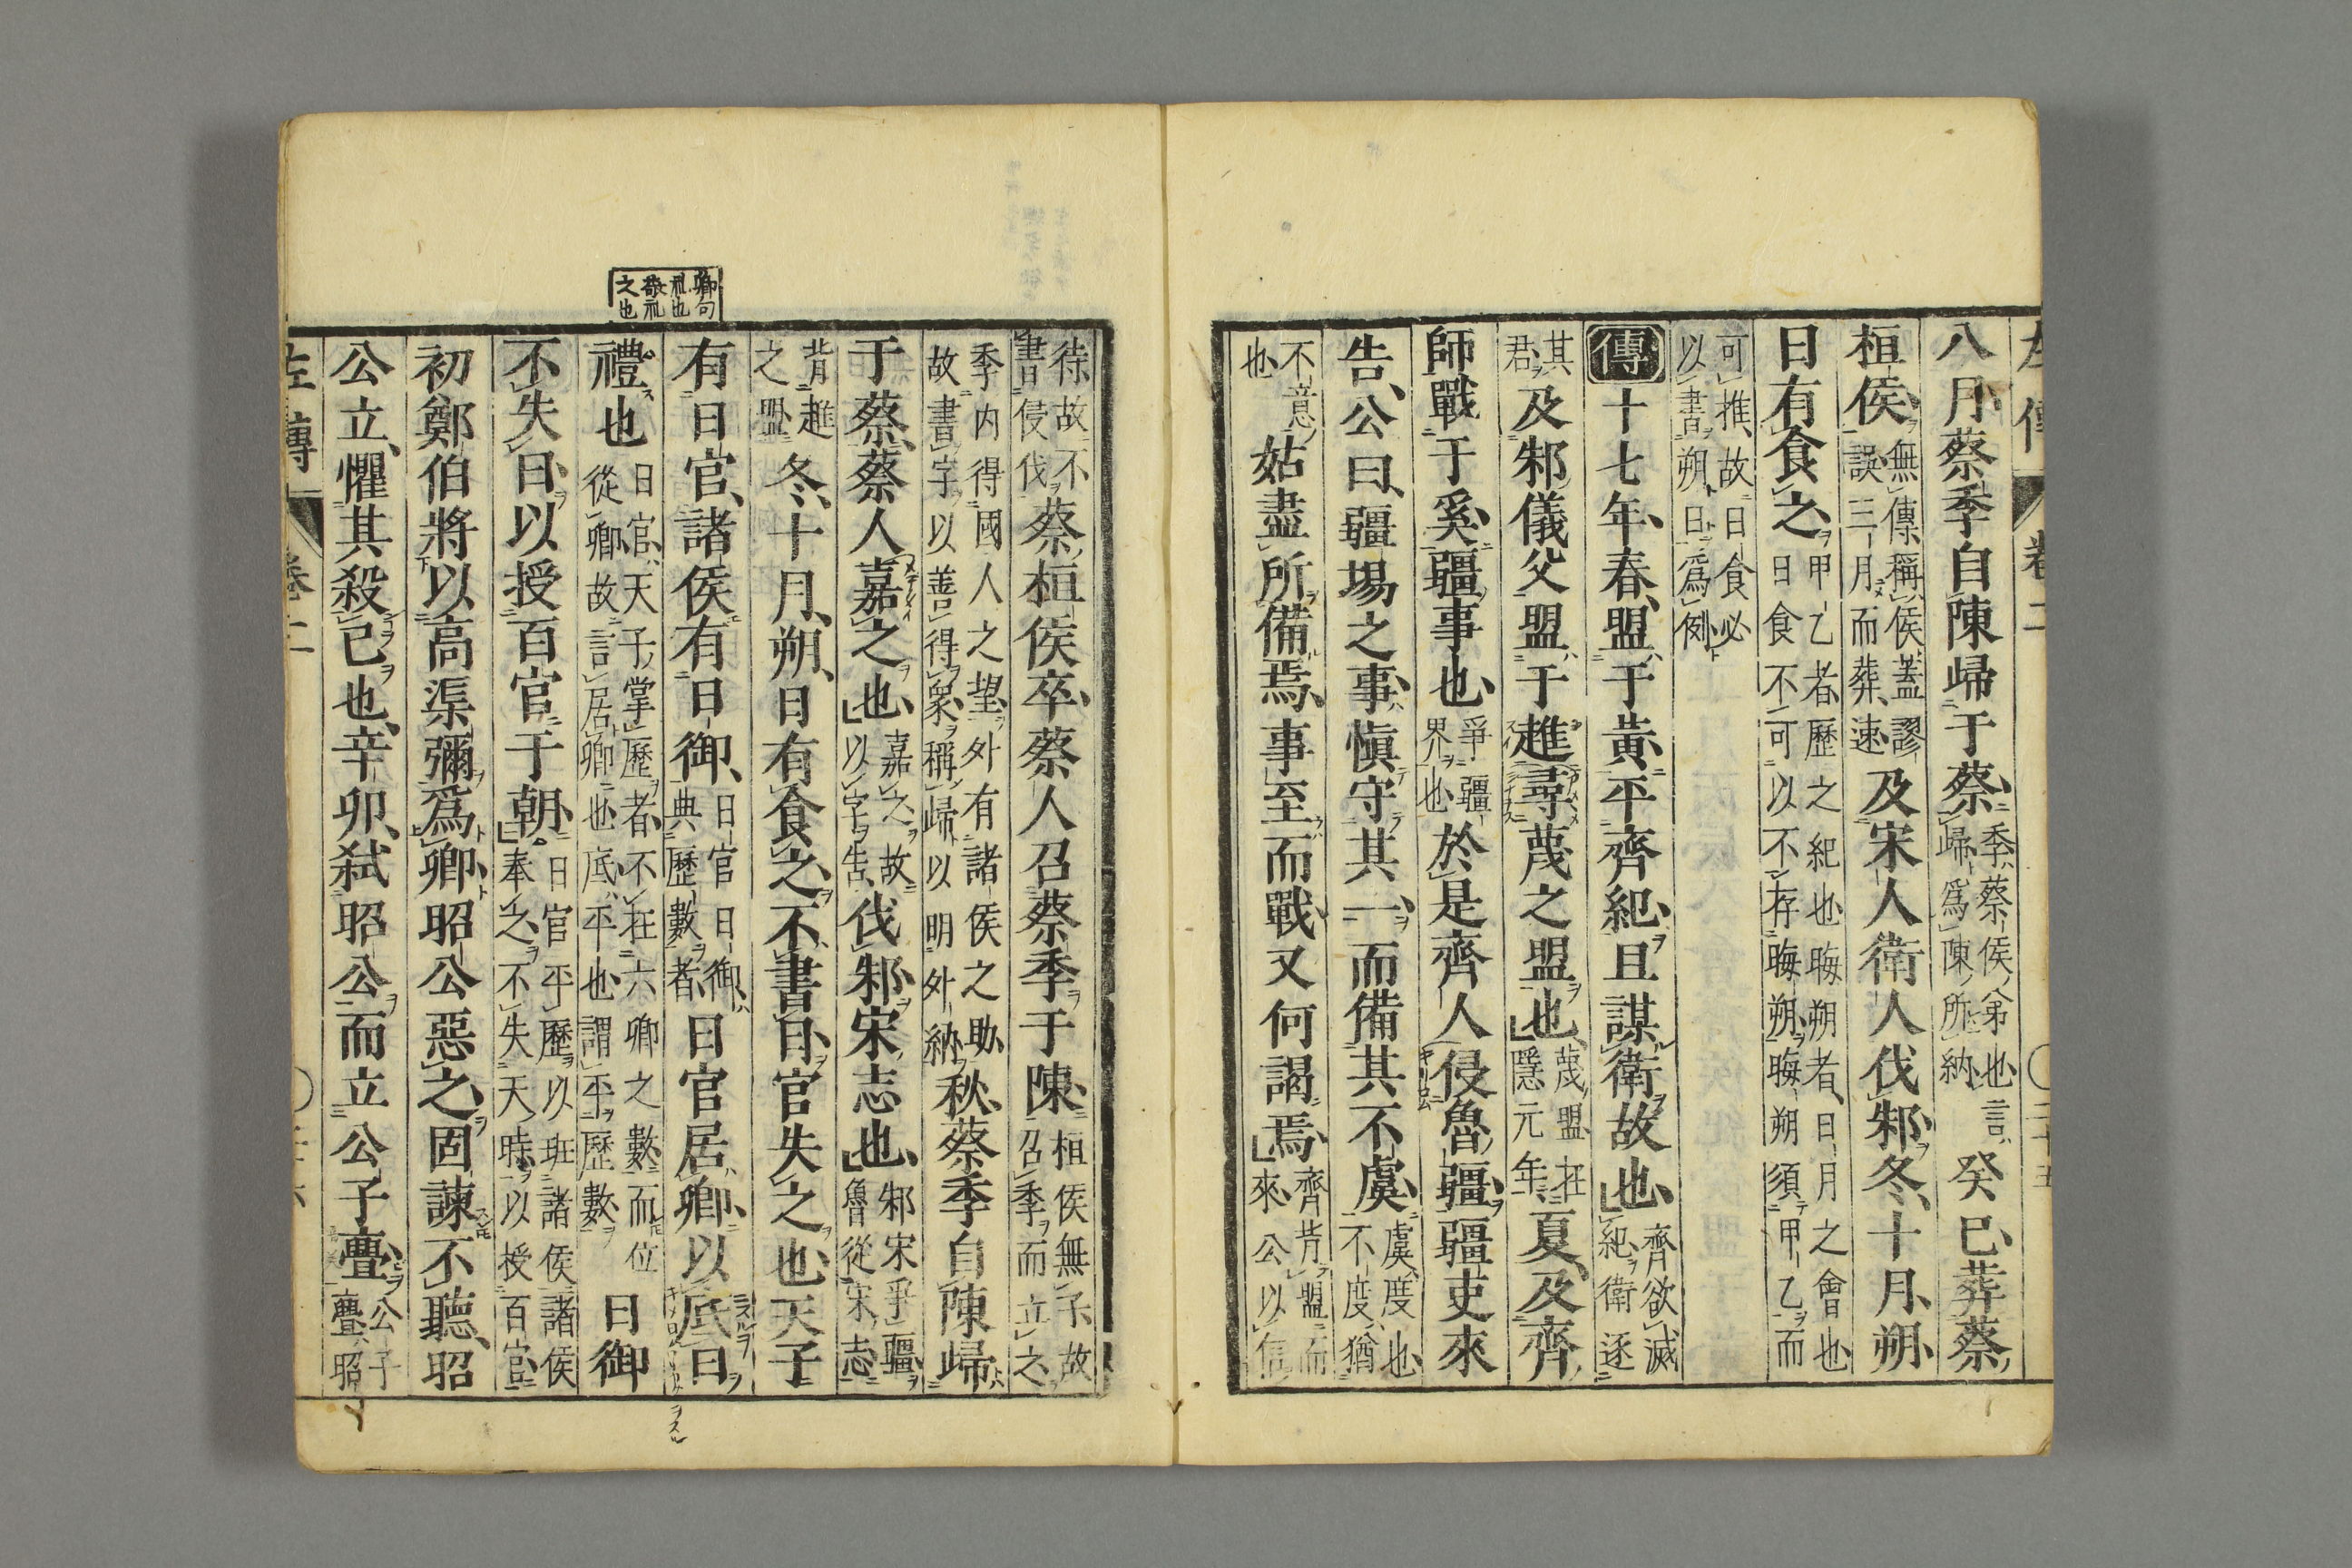 左傳 卷二
八月蔡季自陳歸于蔡季蔡侯弟也言歸爲陳所納癸巳葬蔡
桓侯無傳稱侯蓋謬誤三月而葬速及宋人衛人伐邾冬十月朔
日有食之甲乙者歷之紀也晦朔者日月之會也日食不可以不存晦朔晦朔須甲乙而
可推故日食必以書朔日爲例
傳十七年春盟于黃平齊紀且謀衛故也齊欲滅紀衛逐
其君及邾儀父盟于趡尋蔑之盟也蔑盟在隱元年夏及齊
師戰于奚疆事也爭疆界也於是齊人侵魯疆疆吏來
告公曰疆埸之事愼守其一而備其不虞虞度也不度猶
不意也姑盡所備焉事至而戰又何謁焉齊背盟而來公以信
待故不書侵伐蔡桓侯卒蔡人召蔡季于陳桓侯無子故召季而立之
季内得國人之望外有諸侯之助故書字以善得衆稱歸以明外納秋蔡季自陳歸
于蔡蔡人嘉之也嘉之故以字告伐邾宋志也邾宋爭疆魯從宋志
背趡之盟冬十月朔日有食之不書日官失之也天子
有日官諸侯有日御日官日御典歷數者日官居卿以底日
卿句
礼也
敬礼
之也
禮也日官天子掌歷者不在六卿之數而位從卿故言居卿也底平也謂平歷數日御
不失日以授百官于朝日官平歷以班諸侯諸侯奉之不失天時以授百官
初鄭伯將以高渠彌爲卿昭公惡之固諫不聽昭
公立懼其殺己也辛卯弑昭公而立公子亹公子亹昭
左傳 卷二